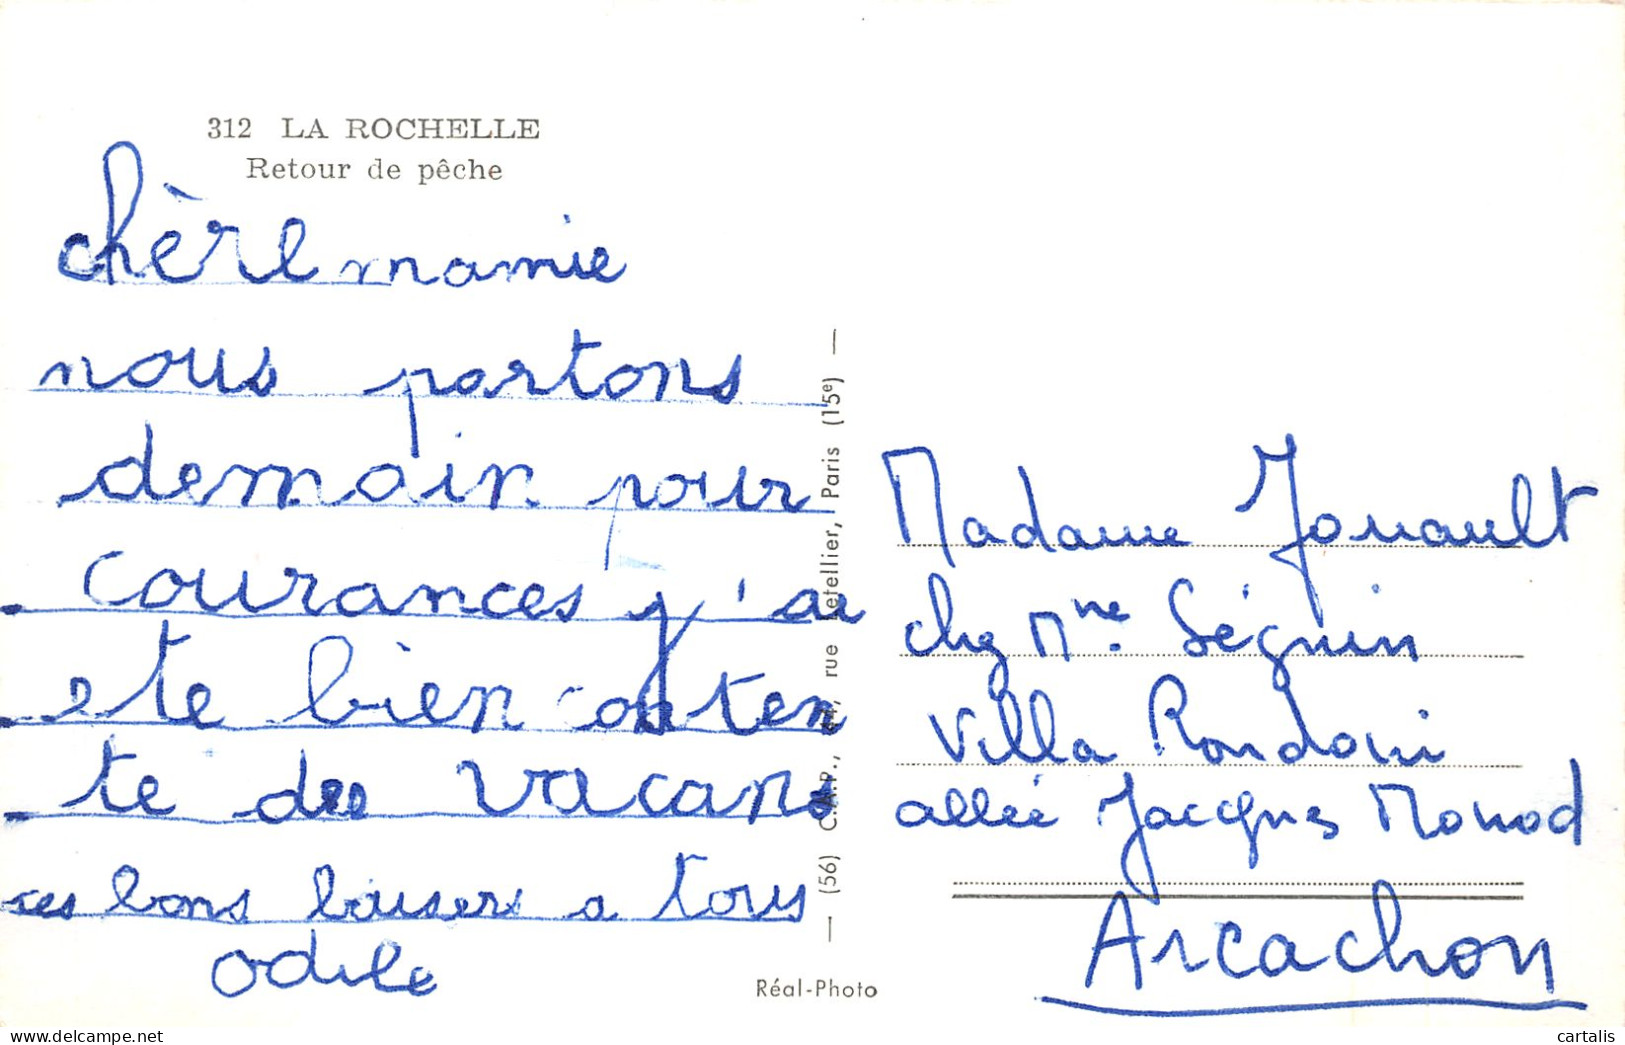 312 LA ROCHELLE
Retour de pêche
chère mamie
nous partons
demain pour
courances j'ai
ete bien conten
te des vacans
ces bons baisers a tous
odile
— (56) C.A.P., rue Letellier, Paris (15e) —
Réal-Photo
Madame Jouault
chez Mme. Séguin
Villa Rondoni
allée Jacques Monod
Arcachon
cartalis